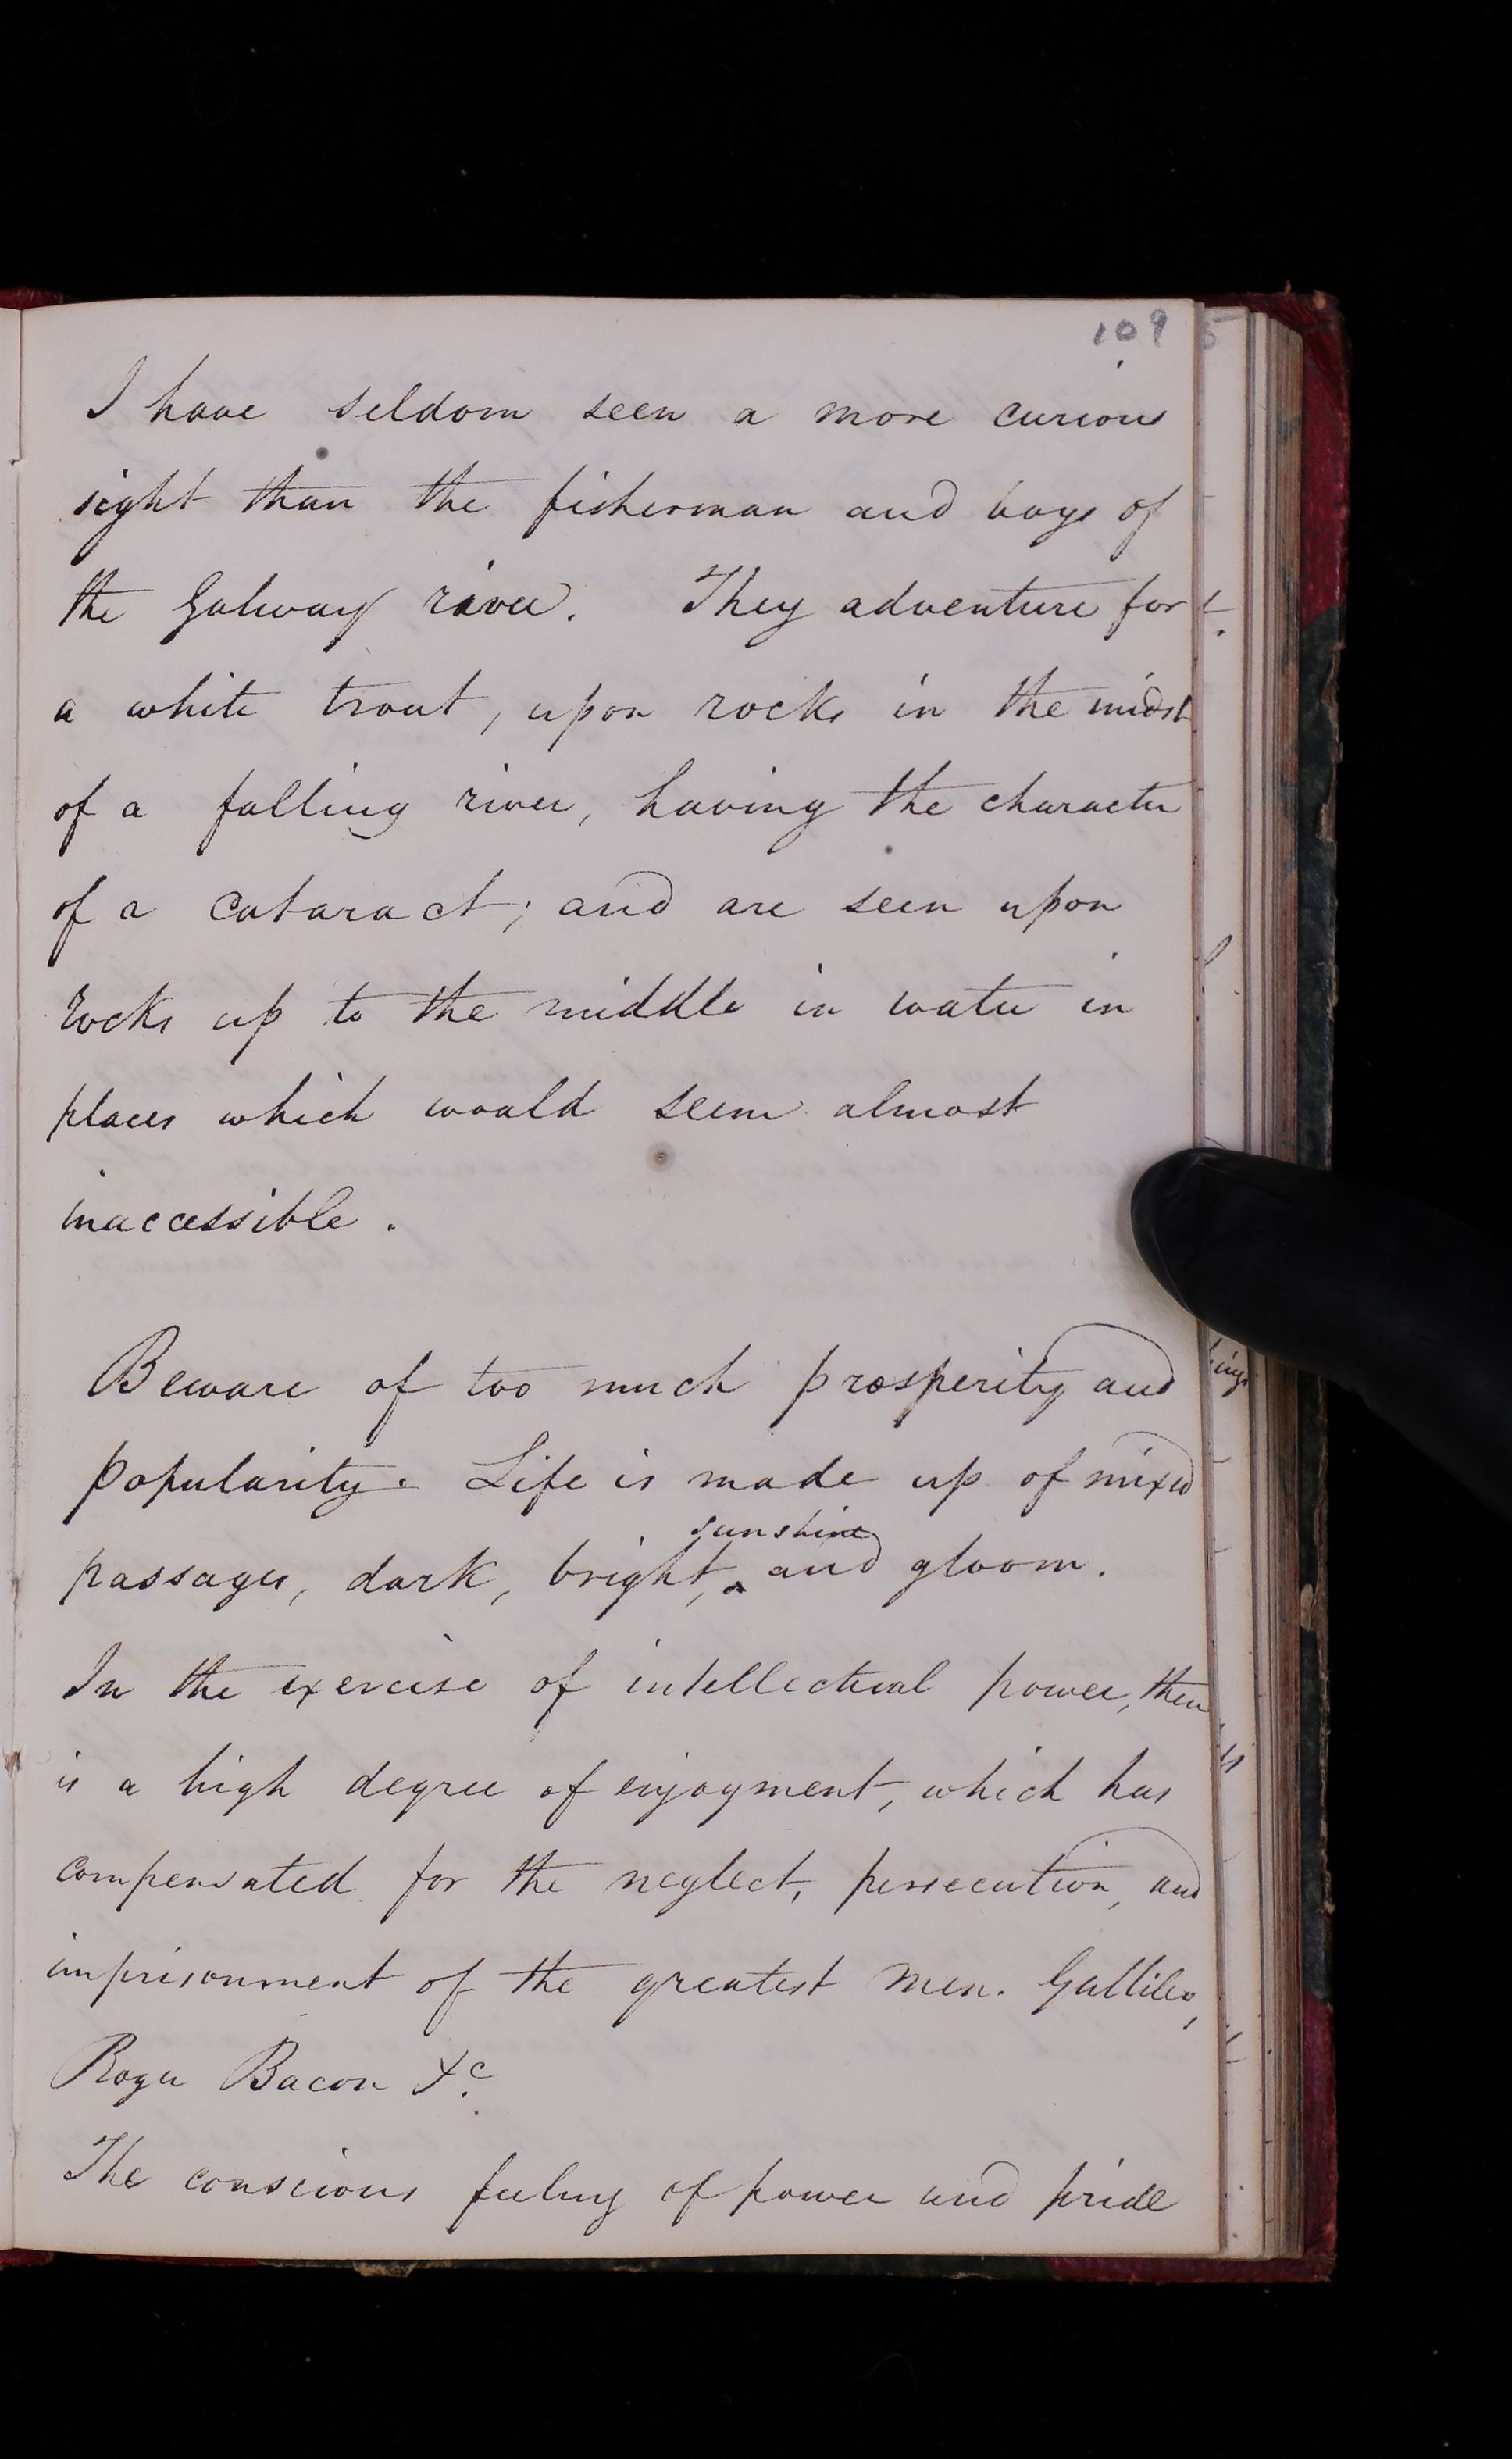 109
I have seldom seen a more curious
sight than the fisherman and boys of
the Galway river. They adventure for
a white trout, upon rocks in the midst
of a falling river, having the character
of a cataract; and are seen upon
rocks up to the middle in water in
places which would seem almost
inaccessible.
Beware of too much prosperity and
popularity. Life is made up of mixed
sunshine
passages, dark, bright, ^ and gloom.
In the exercise of intellectual power, there
is a high degree of enjoyment, which has
compensated for the neglect, persecution, and
imprisonment of the greatest men. Gallileo,
Roger Bacon &c.
The conscious feeling of power and pride